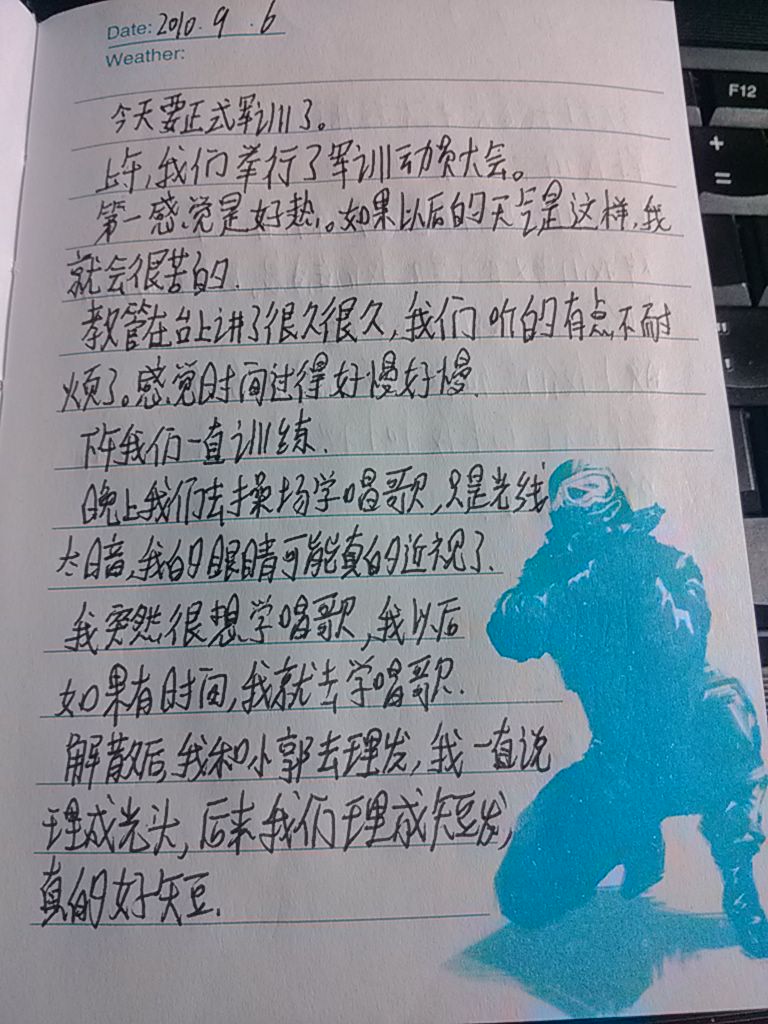 Date: 2010.9.6
Weather:
今天要正式军训了。
上午,我们举行了军训动员大会。
第一感觉是好热。如果以后的天气是这样,我
就会很苦的.
教管在台上讲了很久很久,我们听的有点不耐
烦了。感觉时间过得好慢好慢.
下午我们一直训练.
晚上我们去操场学唱歌,只是光线
太暗,我的眼睛可能真的近视了.
我突然很想学唱歌,我以后
如果有时间,我就去学唱歌.
解散后,我和小郭去理发,我一直说
理成光头,后来我们理成短发,
真的好短.
F12
+
=